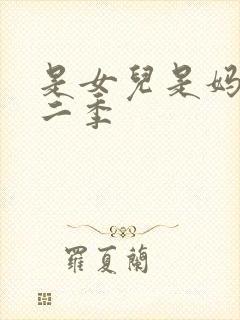 是女兒是妈
二季
羅夏蘭